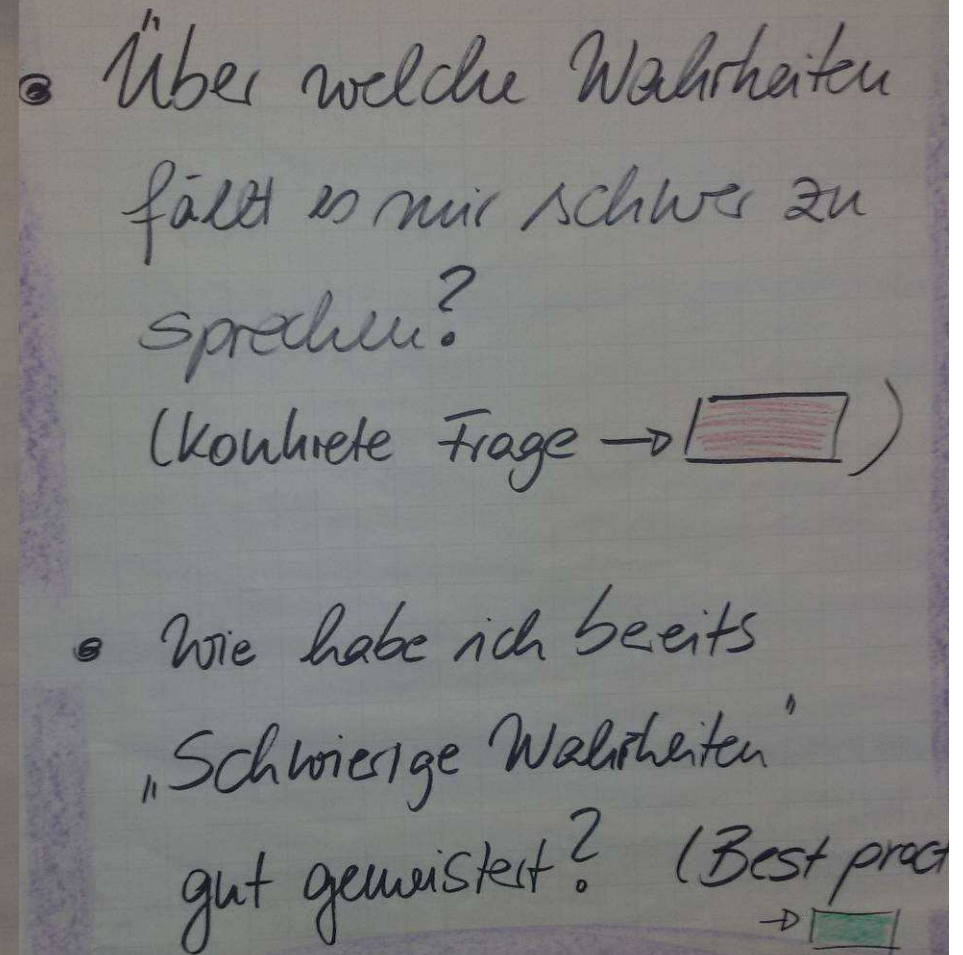 • Über welche Wahrheiten
fällt es mir schwer zu
sprechen?
(Konkrete Frage → )
• Wie habe ich bereits
„Schwierige Wahrheiten"
gut gemeistert? (Best pract
→